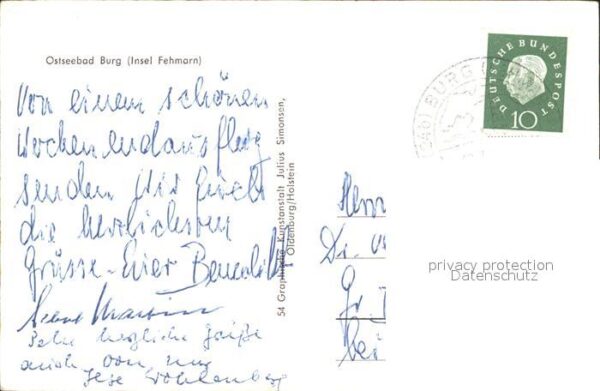 Ostseebad Burg (Insel Fehmarn)
Von einem schönen
Wochenendausflug
senden wir Euch
die herzlichsten
Grüsse - Euer Benedikt
Martin
Sehr herzliche Grüße
auch von
54 Graphische Kunstanstalt Julius Simonsen,
Oldenburg/Holstein
BURG
DEUTSCHE BUNDESPOST
10
Herrn
Dr.
Gr.
bei
privacy protection
Datenschutz